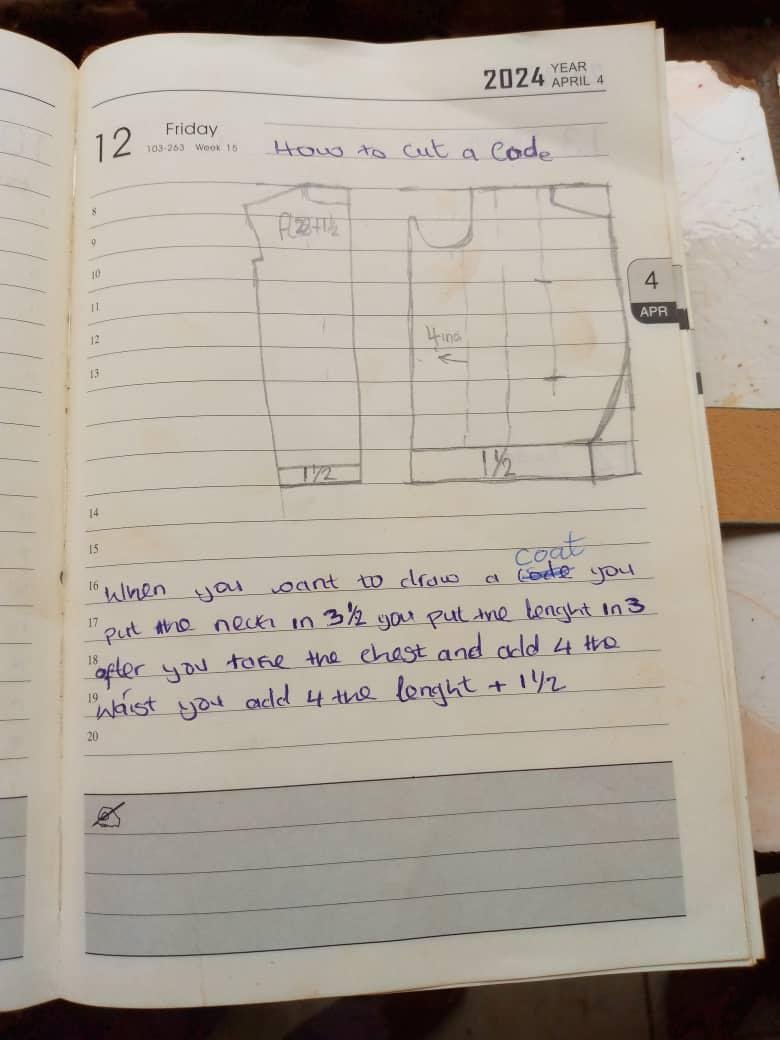 2024 YEAR
APRIL 4
12 Friday
103-263 Week 15
How to cut a Code
8
9
10
11
12
13
4 ins
1 1/2
1 1/2
4
APR
14
15
coat
16 When you want to draw a code you
17 put the neck in 3 1/2 you put the lenght in 3
18 after you take the chest and add 4 the
19 Waist you add 4 the lenght + 1 1/2
20